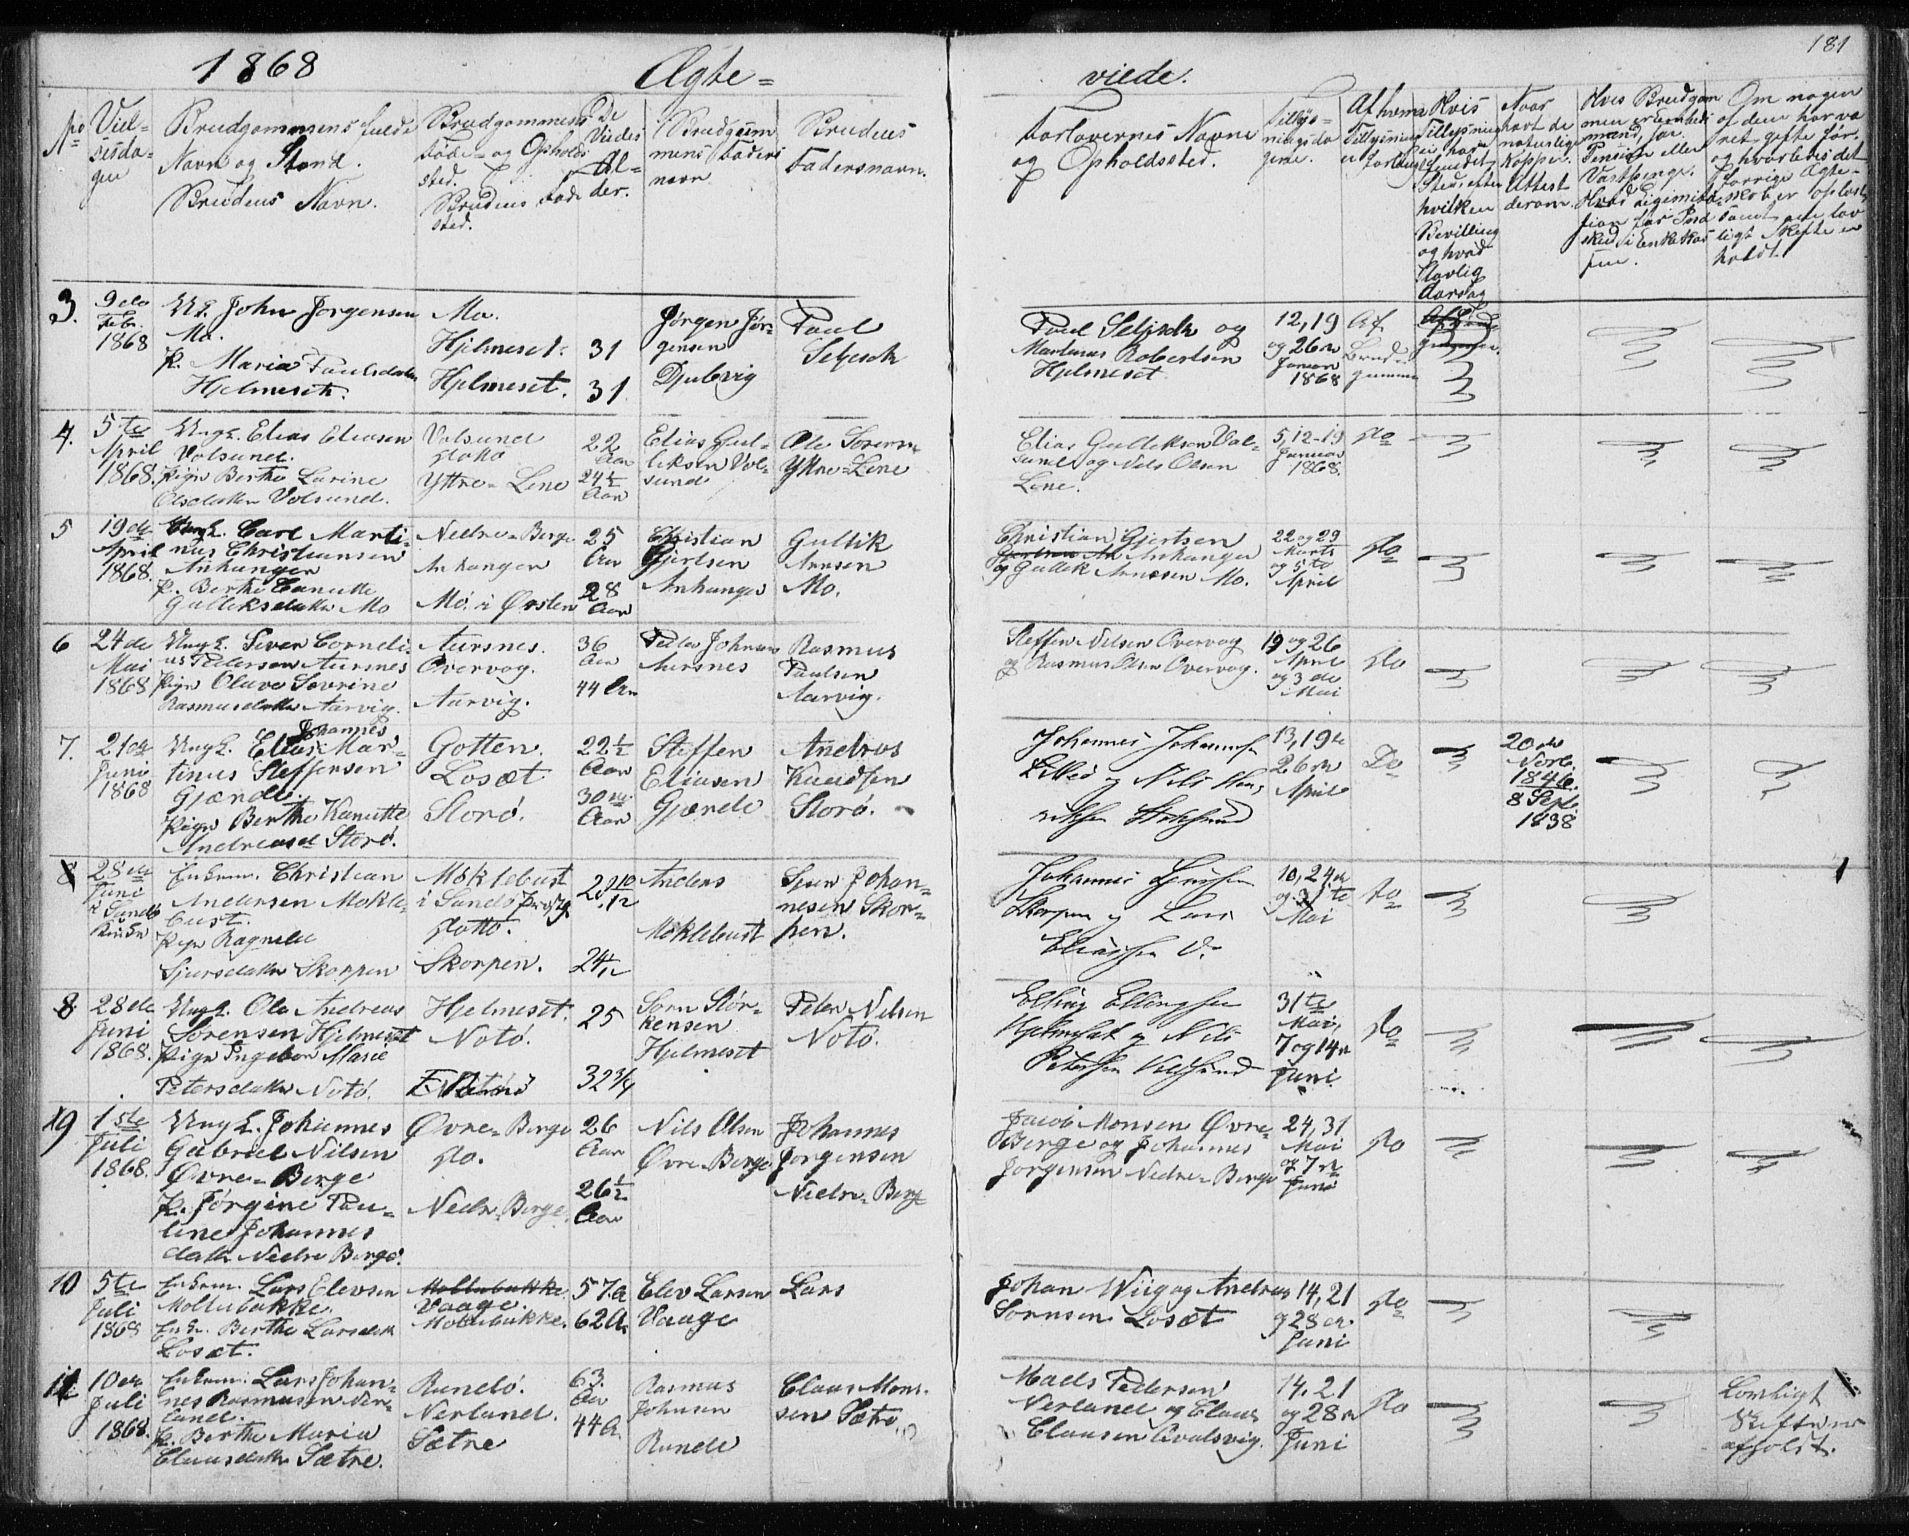 181
1868 Ægte= viede.
No
Viel-
sesda-
gen
Brudgommens fulde
Navn og Stand.
Brudens Navn.
Brudgommens
Føde- og Opholds
sted.
Brudens Føde
sted.
De
Viedes
Al-
der.
Brudgom
mens Faders
navn
Brudens
Fadersnavn.
Forlovernes Navne
og Opholdssted.
Tillys-
ningsda
gene.
Af hvem
Tillysning
er
forlangt
Hvis
Tillysning
er
skeedet
hvilken
Bevilling
og hvad
Aarsag
Naar
havt de
naturlige
Kopper.
Attest
derom.
Hvis Brudgom
men er
mand, for
Pension eller
Om nogen
af dem har væ
ret gifte før,
og hvorledes det
forrige Ægte-
skab er opløst,
samt om lov
ligt Skifte er
holdt.
3.
9de
Febr.
1868
Mo.
P. Maria Paulsdatter
Hjelmeset.
Mo.
Hjelmeset.
Hjelmeset.
31
31
Jørgen Jør-
gensen
Djubvig
Paul
Seljeseth
Paul Seljeseth og
Martinus Robertsen
Hjelmeset
12, 19
og 26de
Januar
1868
Af
Brud-
gommen
4.
5te
April
1868.
Ungk. Elias Eliasen
Volsund.
Pige Berthe Larine
Olsdatter Volsund.
Volsund
ditto
Yttre-Lene
22
Aar
24½
Aar
Elias Gul-
liksen Vol-
sund
Ole Sorens.
Yttre-Lene
Elias Gulliksen Vol-
sund og Nils Olsen
Lene.
5, 12-19
Januar
1868.
do
5
19de
April
1868.
Ungk. Carl Marti-
nus Christiansen
Anhanger
P. Berthe Canutte
Gulliksdatter Mo
Nedre-Berge
Anhangen
Mo i Ørsten
25
Aar
28
Aar
Christian
Gjertsen
Anhanger
Gullik
Arnesen
Mo.
Christian Gjertsen
Anhanger
og Gullik Arnesen Mo.
22 og 29
Marts
og 5te
April
do
6
24de
Mai
1868
Ungk. Sever Corneli-
us Pedersen Aursnes
Pige Olave Sevrine
Rasmusdatter Aarvig.
Aursnes.
Overvog.
Aarvig.
36
Aar
44 Aar
Peder Johnsen
Aursnes
Rasmus
Paulsen
Aarvig.
Steffen Nilsen Overvog
og Rasmus Olsen Overvog.
19 og 26
April
og 3de
Mai
do
7.
21de
Juni
1868
Johannes
Ungk. Elias Mar-
tinus Steffensen
Gjærde.
Pige Berthe Kanutte
Andreasd Storø.
Gotten.
Losæt
Storø.
22½
Aar
30
Aar
Steffen
Eliasen
Gjærde
Andreas
Knudsen
Storø.
Johannes Johannesen
13, 19de
26de
April
Do
20de
Novb.
1846.
8 Sept.
1838
8
28de
Juni
Enkem. Christian
Andersen Mokle-
bust.
Pige Ragnele
Sjursdatter Skorpen
Moklebust
i Sandø Prgj.
ditto.
Skorpen.
Anders
Moklebust
Johan-
nesen Skor-
pen.
10, 24de
og 31te
Mai
do
8
28de
Juni
1868.
Ungk. Ole Andreas
Sørensen Hjelmeset
Pige Ingebor Marie
Petersdatter Notø.
Hjelmeset.
Notø.
25
32¾
Sørn Stør-
kensen
Hjelmeset
Peter Nilsen
Notø.
Elling Ellingsen
Hjelmeset og Nils
Petersen Volsund
31te
Mai,
7 og 14de
Juni
do
19
1ste
Juli
1868.
Ungk. Johannes
Gabriel Nilsen
Øvre-Berge
P. Jørgine Pau-
line Johannes
datter Nedre Berge.
Øvre-Berge
do.
Nedre-Berge.
26
Aar
26½
Aar
Nils Olsen
Øvre-Berge
Johannes
Jorgensen
Nedre-Berge
Jacob Monsen Øvre-
Berge og Johannes
Jorgensen Nedre-Berge
24, 31
Mai
og 7de
Juni
do
10
5te
Juli
1868
Enkem. Lars Elevsen
Mollebakke.
Enke. Berthe Larsdatter
Losæt.
Mollebakke.
Vaage.
Mollebakke.
57 A
62 A.
Elev Larsen
Vaage
Lars
Johan Wiig og Andreas
Sornsen Losæt
14, 21
og 28de
Juni
do
11
10de
Juli
1868.
Enkem. Lars Johan-
nes Rasmusen Ner-
land.
P. Berthe Maria
Clausdatter Sætre.
Rundø.
Nerland.
Sætre
63.
Aar
44 A.
Rasmus
Johnsen
Runde
Claus Mons-
sen Sætre
Mads Pedersen
Nerland og Claus
Clausen Kvalsvig.
14. 21
og 28de
Juni
do
Lovligt
Skifte er
afholdt.